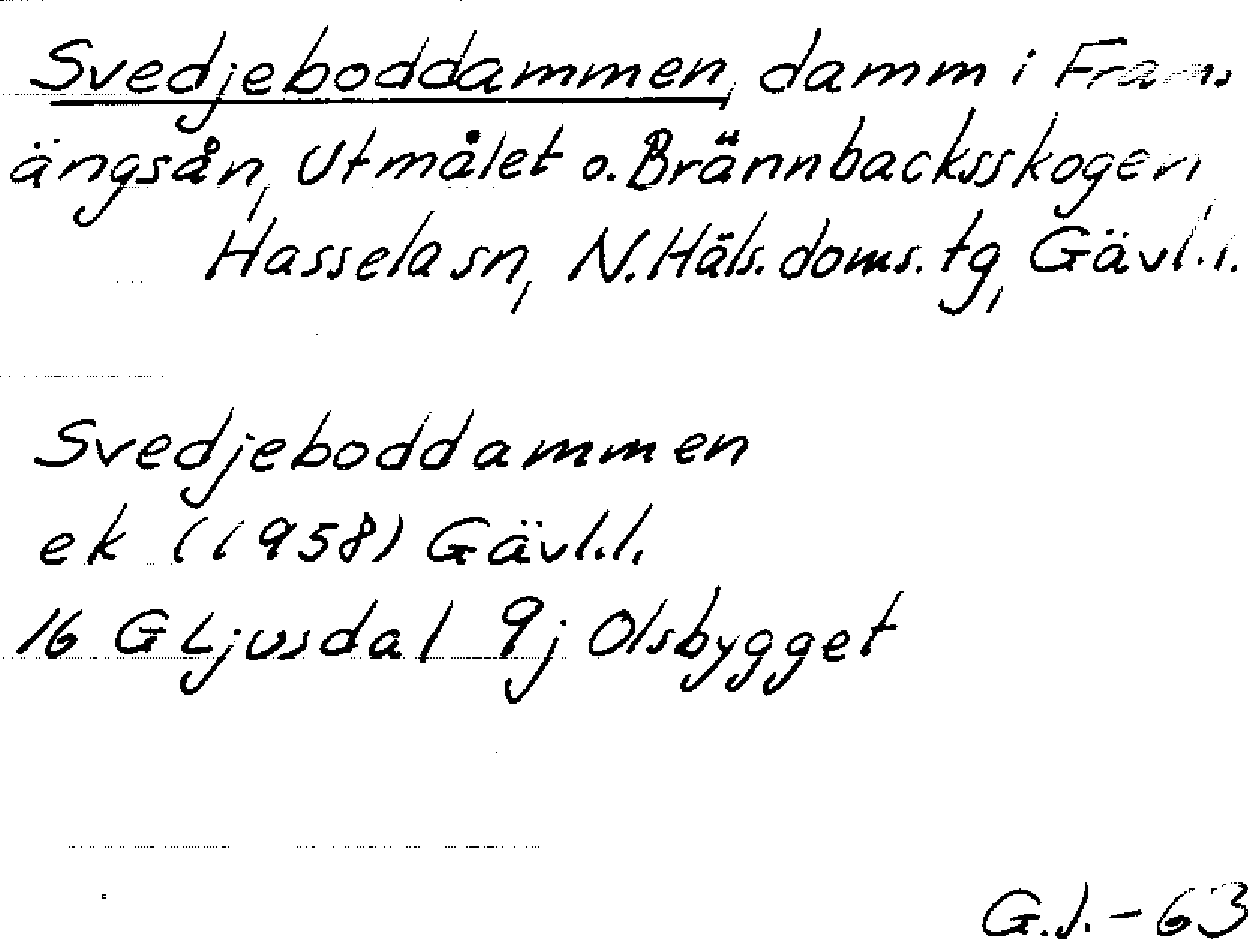 Svedjeboddammen, damm i Fram-
ängsån, Utmålet o. Brännbacksskogen,
Hassela sn, N. Häls. doms. tg, Gävl.l.
Svedjeboddammen
ek (1958) Gävl.l.
16 G Ljusdal 9j Olsbygget
G.J.-63